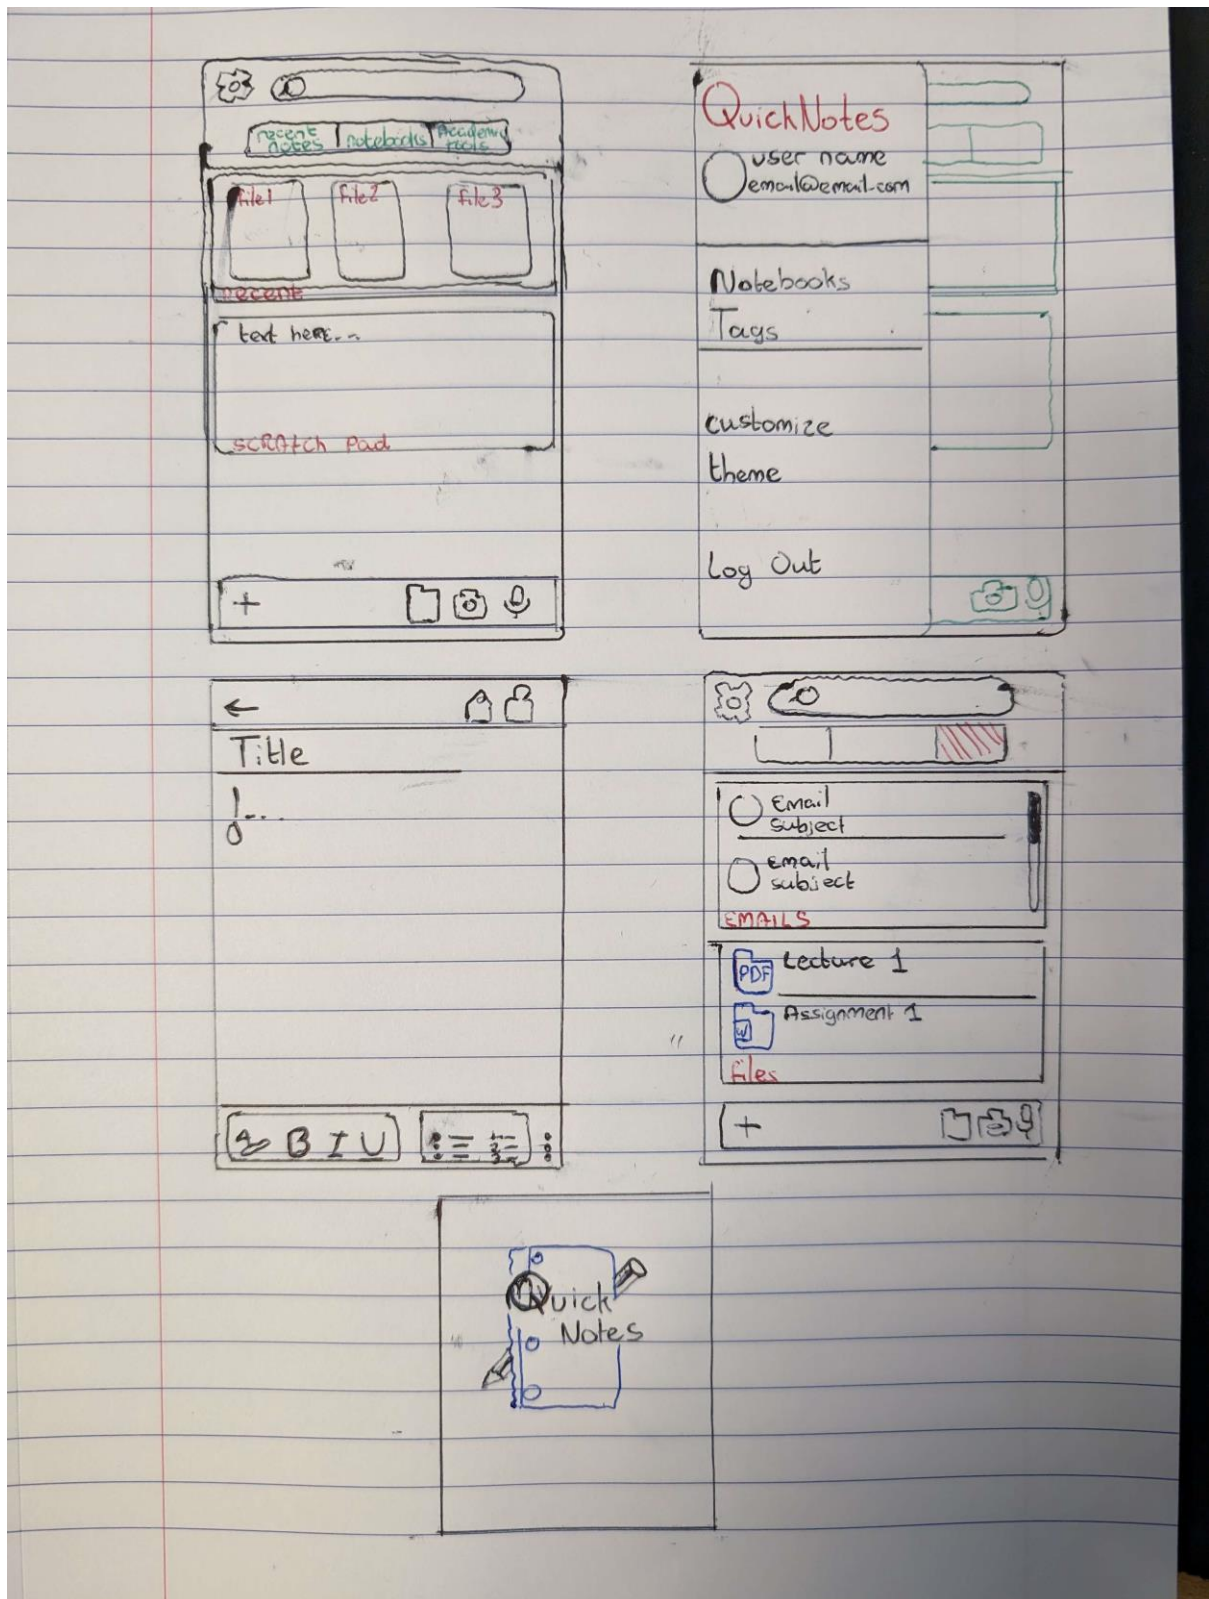 recent notes
notebooks
Academic tools
file1
file2
file3
recent
text here...
SCRAtch Pad
QuickNotes
user name
email@email.com
Notebooks
Tags
customize
theme
Log Out
Title
B I U
Email
subject
Email
subject
EMAILS
PDF
Lecture 1
W
Assignment 1
files
Quick
Notes